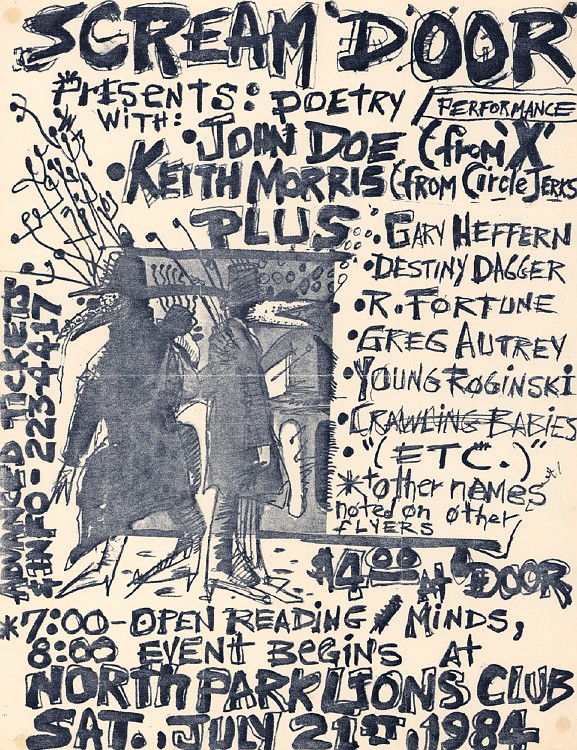 SCREAM DOOR
PRESENTS: POETRY PERFORMANCE
WITH:
• JOHN DOE (from 'X'
• KEITH MORRIS (FROM Circle JERKS
PLUS
• GARY HEFFERN
• DESTINY DAGGER
• R. FORTUNE
• GREG AUTREY
• YOUNG ROGINSKI
• CRAWLING BABIES
• "(ETC.)"
* other names
noted on other
FLYERS
ADVANCED TICKETS
& INFO- 223-4417
$4.00 AT DOOR
*7:00-OPEN READING / MINDS,
8:00 EVENT BEGINS AT
NORTH PARK LIONS CLUB
SAT. JULY 21ST. 1984